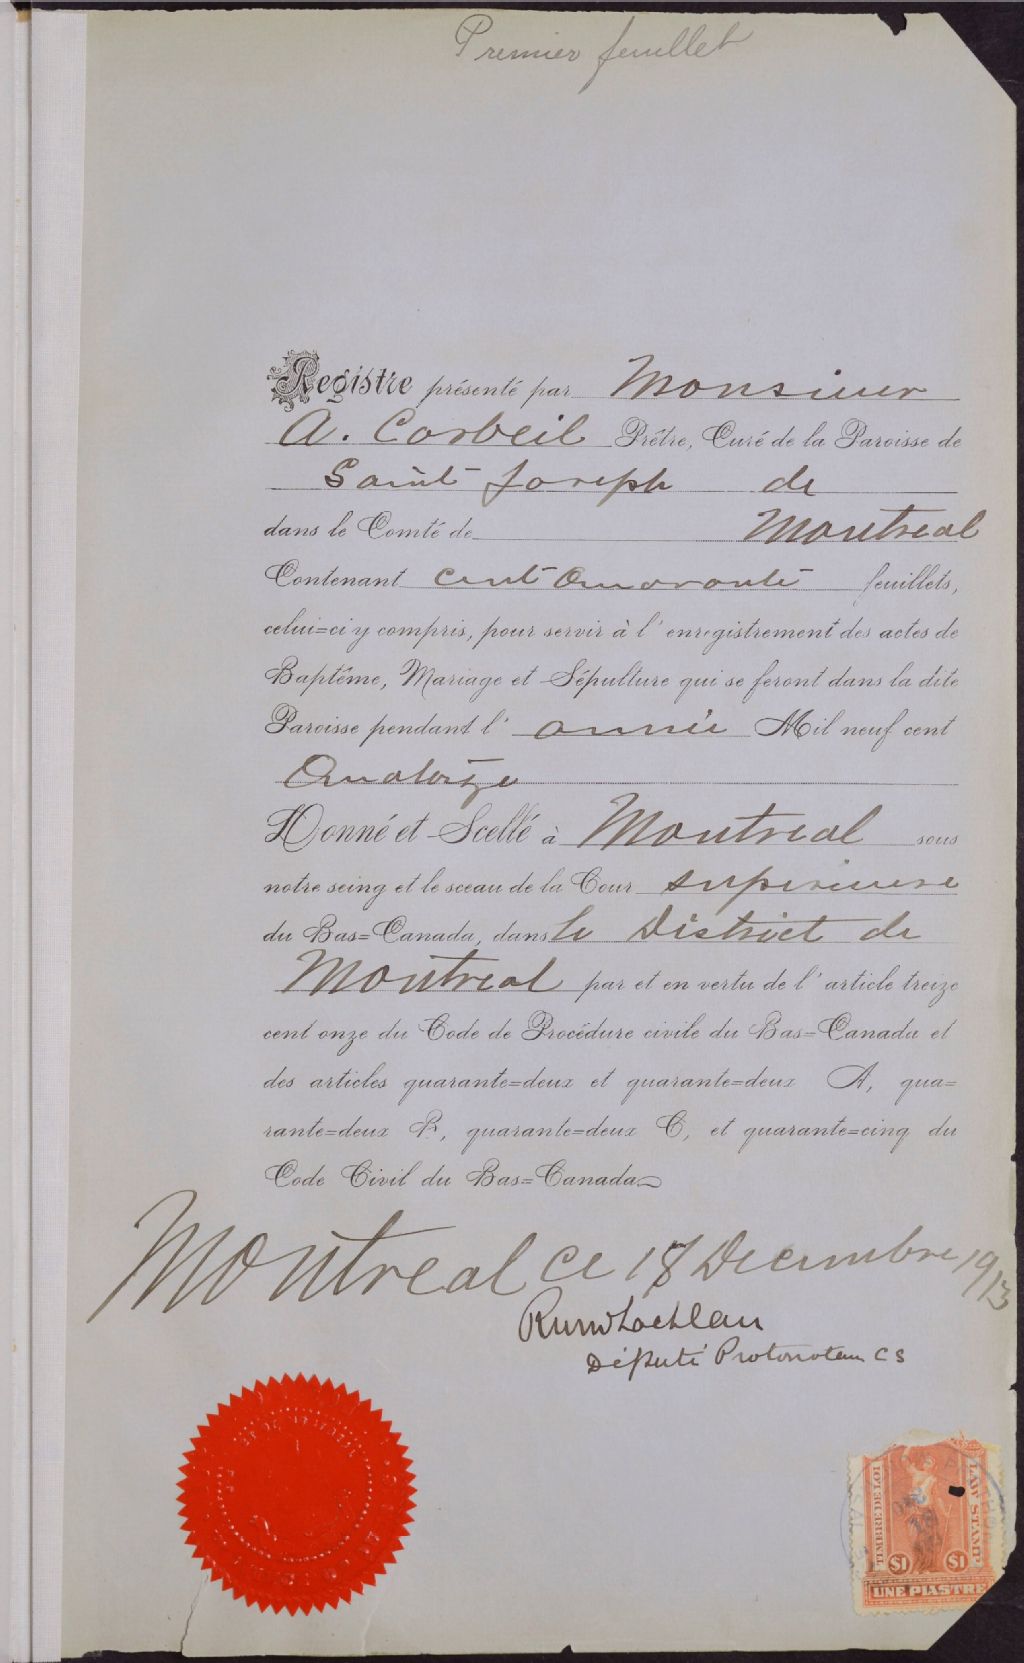 Premier feuillet
Registre présenté par Monsieur
A. Corbeil Prêtre, Curé de la Paroisse de
Saint Joseph de
dans le Comté de Montreal
Contenant cent quarante feuillets,
celui=ci y compris, pour servir à l'enregistrement des actes de
Baptême, Mariage et Sépulture qui se feront dans la dite
Paroisse pendant l'année Mil neuf cent
Quatorze
Donné et Scellé à Montreal sous
notre seing et le sceau de la Cour superieure
du Bas=Canada, dans le District de
Montreal par et en vertu de l'article treize
cent onze du Code de Procédure civile du Bas=Canada et
des articles quarante=deux et quarante=deux A, qua=
rante=deux B, quarante=deux C, et quarante=cinq du
Code Civil du Bas=Canada
Montreal ce 18 Decembre 1913
Député Protonotaire CS
TIMBRE DE LOI
LAW STAMP
$1 $1
UNE PIASTRE